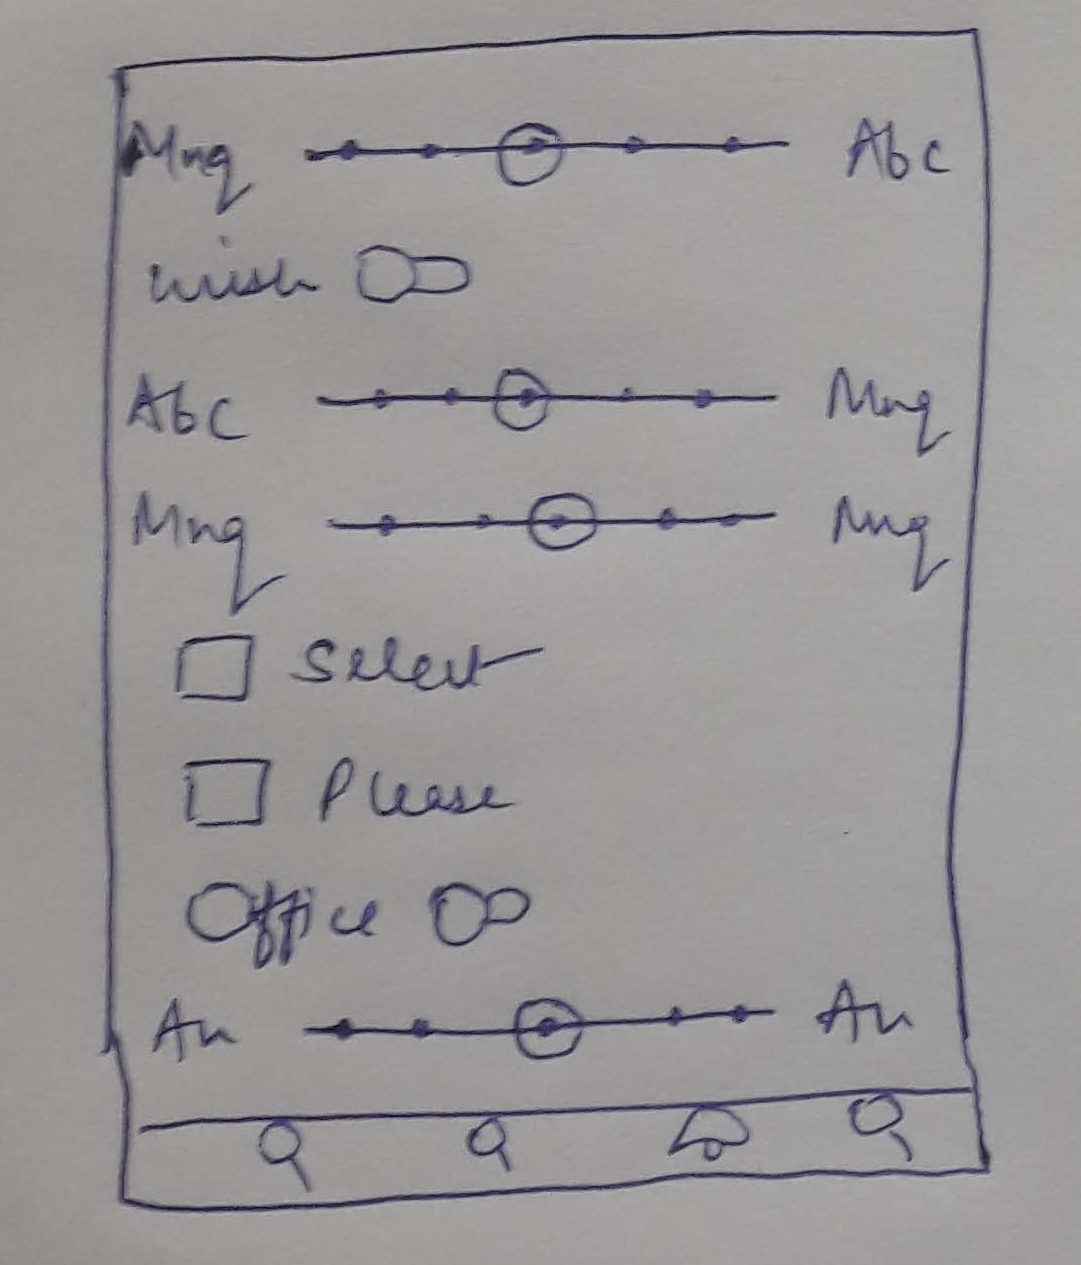 Mnq Abc
wish
Abc Mnq
Mnq Mnq
Select
Please
Office
An An